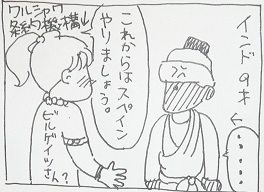 インド9才
・・・・・・
これからはスペイン
やりましょう。
ワルシャワ
条約機構
ビルゲイツさん?